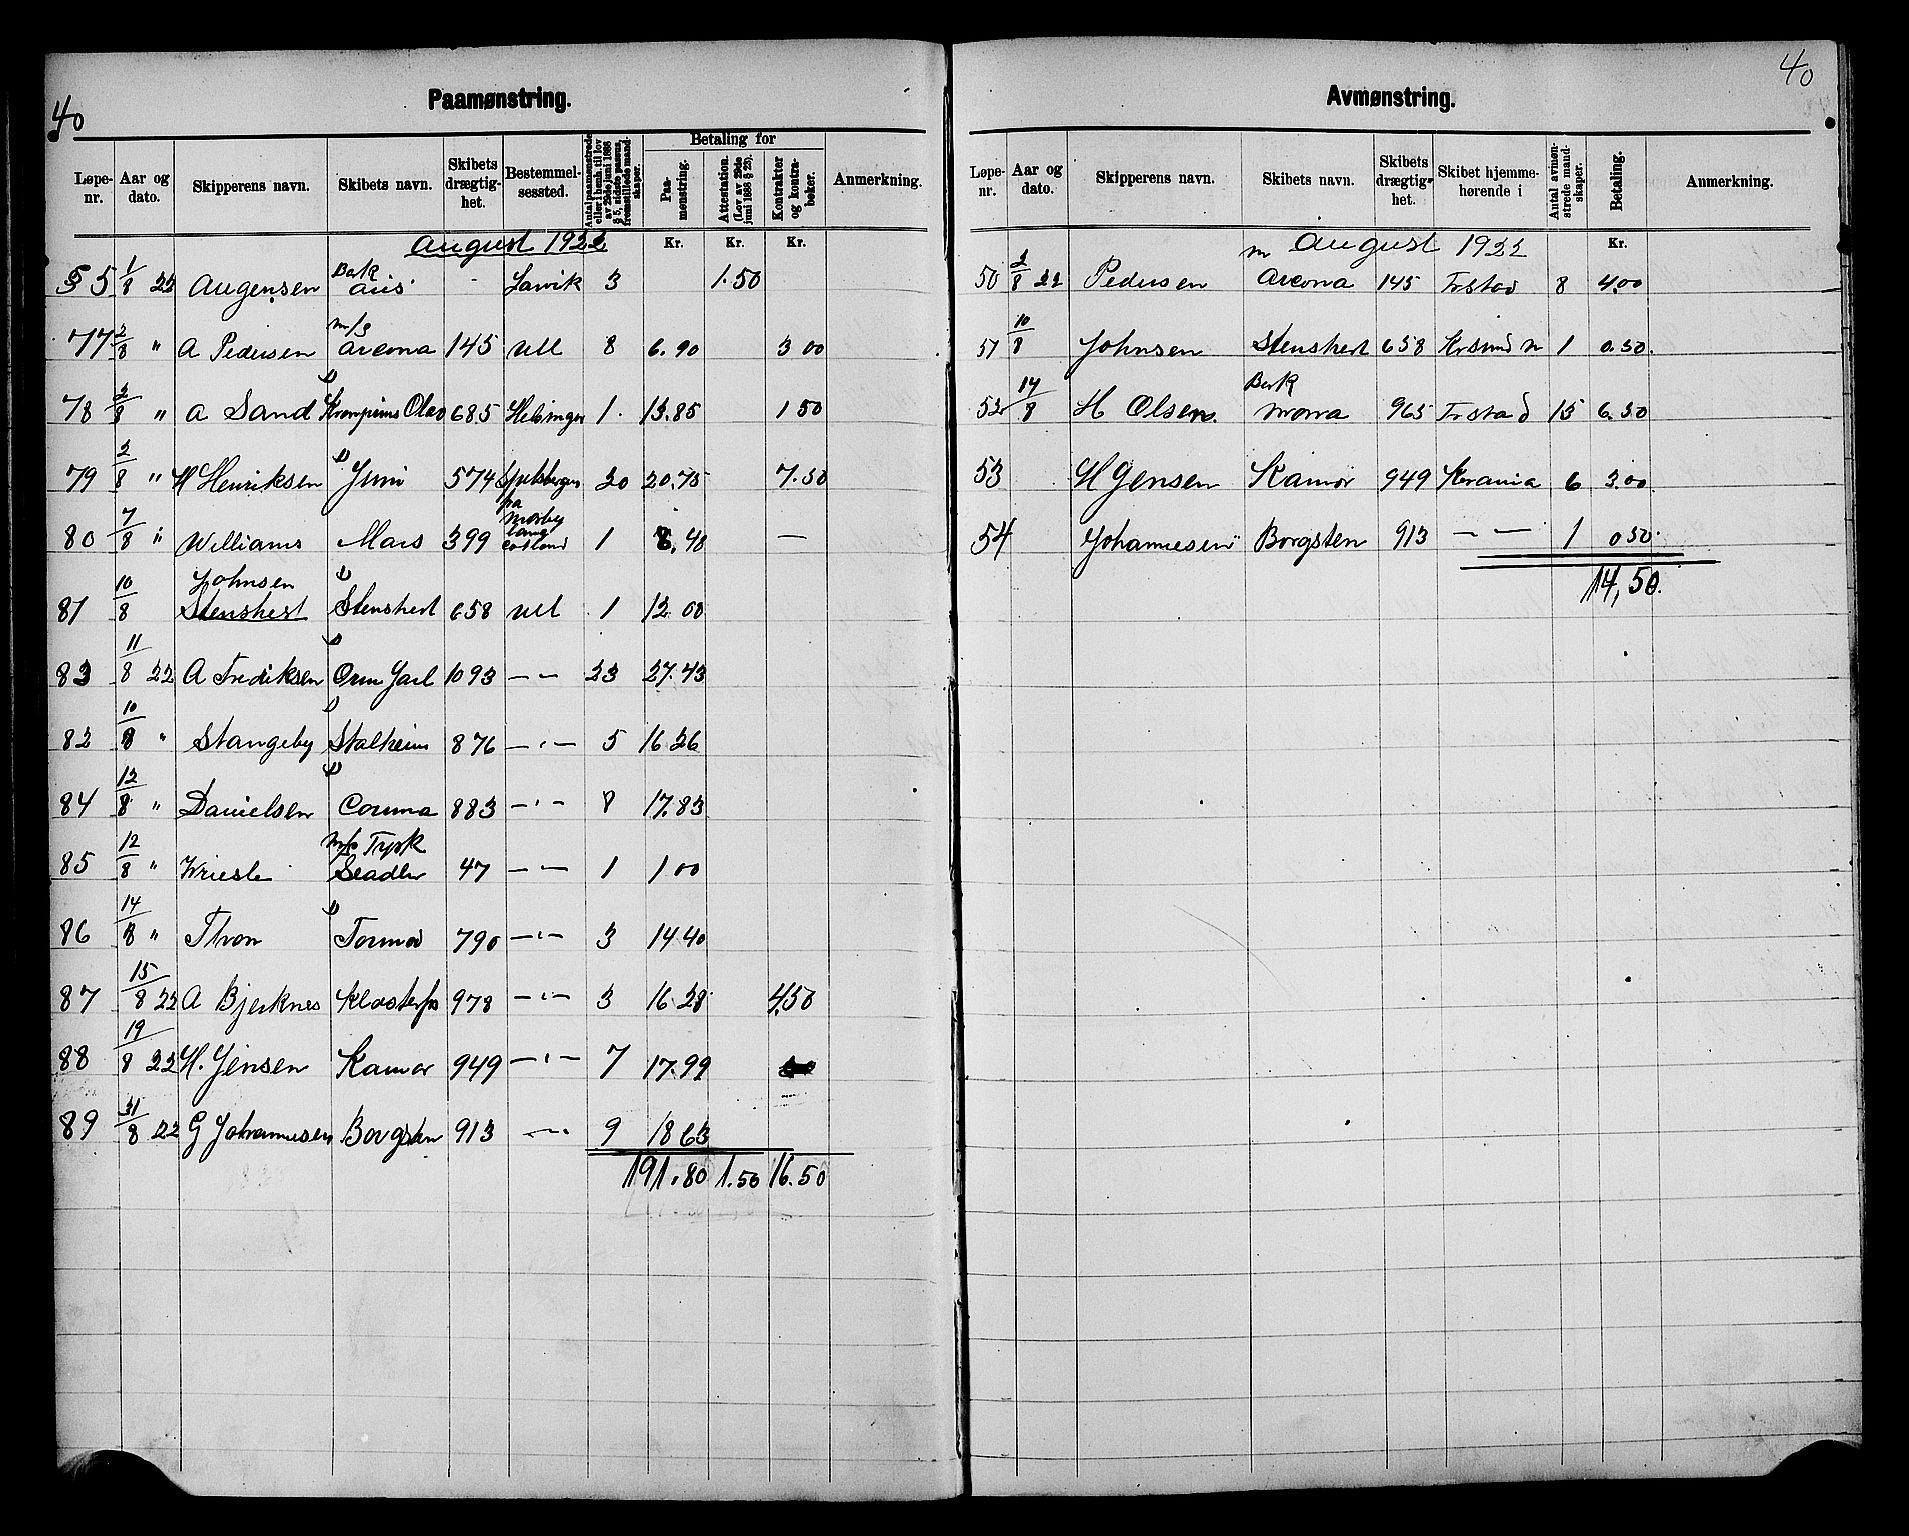 40
Paamønstring.
Løpe-nr. Aar og dato. Skipperens navn. Skibets navn. Skibets drægtig-het. Bestemmel-sessted. Antal paamønstrede eller i henh. til lov av 29de juni 1888 § 5, sidste passus, fremstillede mand-skaper. Betaling for Paa-mønstring. Attestation. (Lov av 29de juni 1888 § 25). Kontrakter og kontra-bøker. Anmerkning.
Kr. Kr. Kr.
August 1922
55 1/8 22 Augensen Bark Aris - Larvik 3 1.50
77 2/8 " A Pedersen m/s Arcona 145 Ull 8 6.90 3 00
78 2/8 " A Sand Kronprins Olav 685 Helsingør 1 13.85 1 50
79 2/8 " H Henriksen Juni 574 Spitsbergen 20 20.75 7.50
80 7/8 " Williams Mars 399 1 8.40 —
81 10/8 Johnsen Stenshest Stenshest 658 Ull 1 12 00
83 11/8 22 A Frediksen Orm Jarl 1093 — - — 23 27.43
82 10/8 " Stangeby Stalheim 876 — " — 5 16 26
84 12/8 " Danielsen Corona 883 — " — 8 17.83
85 12/8 " Tysk Seadler 47 — - — 1 1 00
86 14/8 " Thron Tormod 790 — " — 3 14 40
87 15/8 22 A Bjerknes Klosterfos 978 — " — 3 16 28 4.50
88 19/8 22 H. Jensen Kamor 949 — " — 7 17.99
89 31/8 22 G Johannesen Borgsten 913 — " 9 18 63
191.80 1.50 16.50
40
Avmønstring.
Løpe-nr. Aar og dato. Skipperens navn. Skibets navn. Skibets drægtig-het. Skibet hjemme-hørende i Antal avmøn-strede mand-skaper. Betaling. Anmerkning.
Kr.
August 1922
50 2/8 22 Pedersen m Arcona 145 Frstad 8 4.00
51 10/8 Johnsen Stenshest 658 Krsund N 1 0.50.
52 14/8 H Olsen. Bark Mona 965 Frstad 13 6.50
53 H Jensen Kamor 949 Krania 6 3.00
54 Johannesen Borgsten 913 — - — 1 0 50.
14,50.